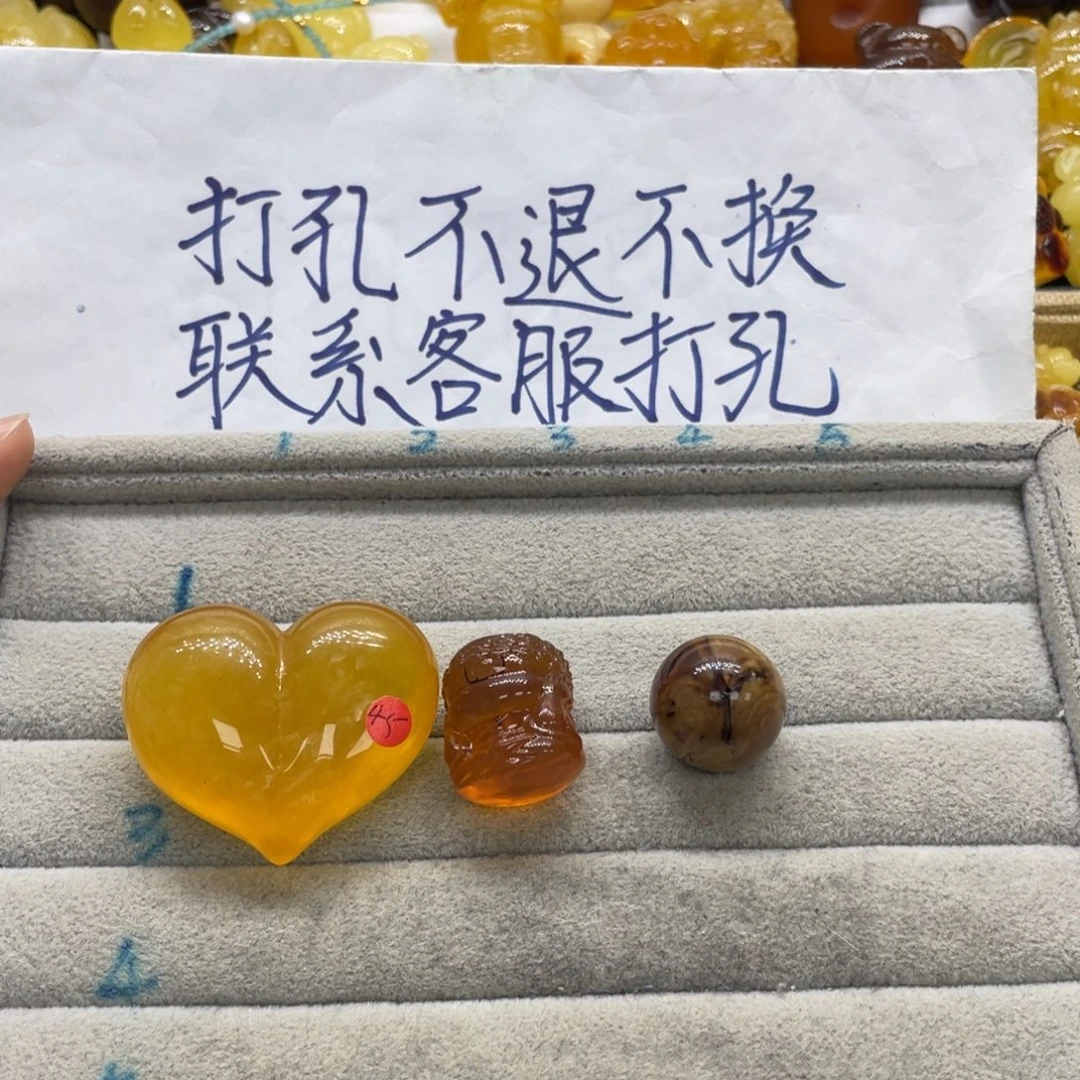 打孔不退不换
联系客服打孔
1 2 3 4 5
1
45-
3
4